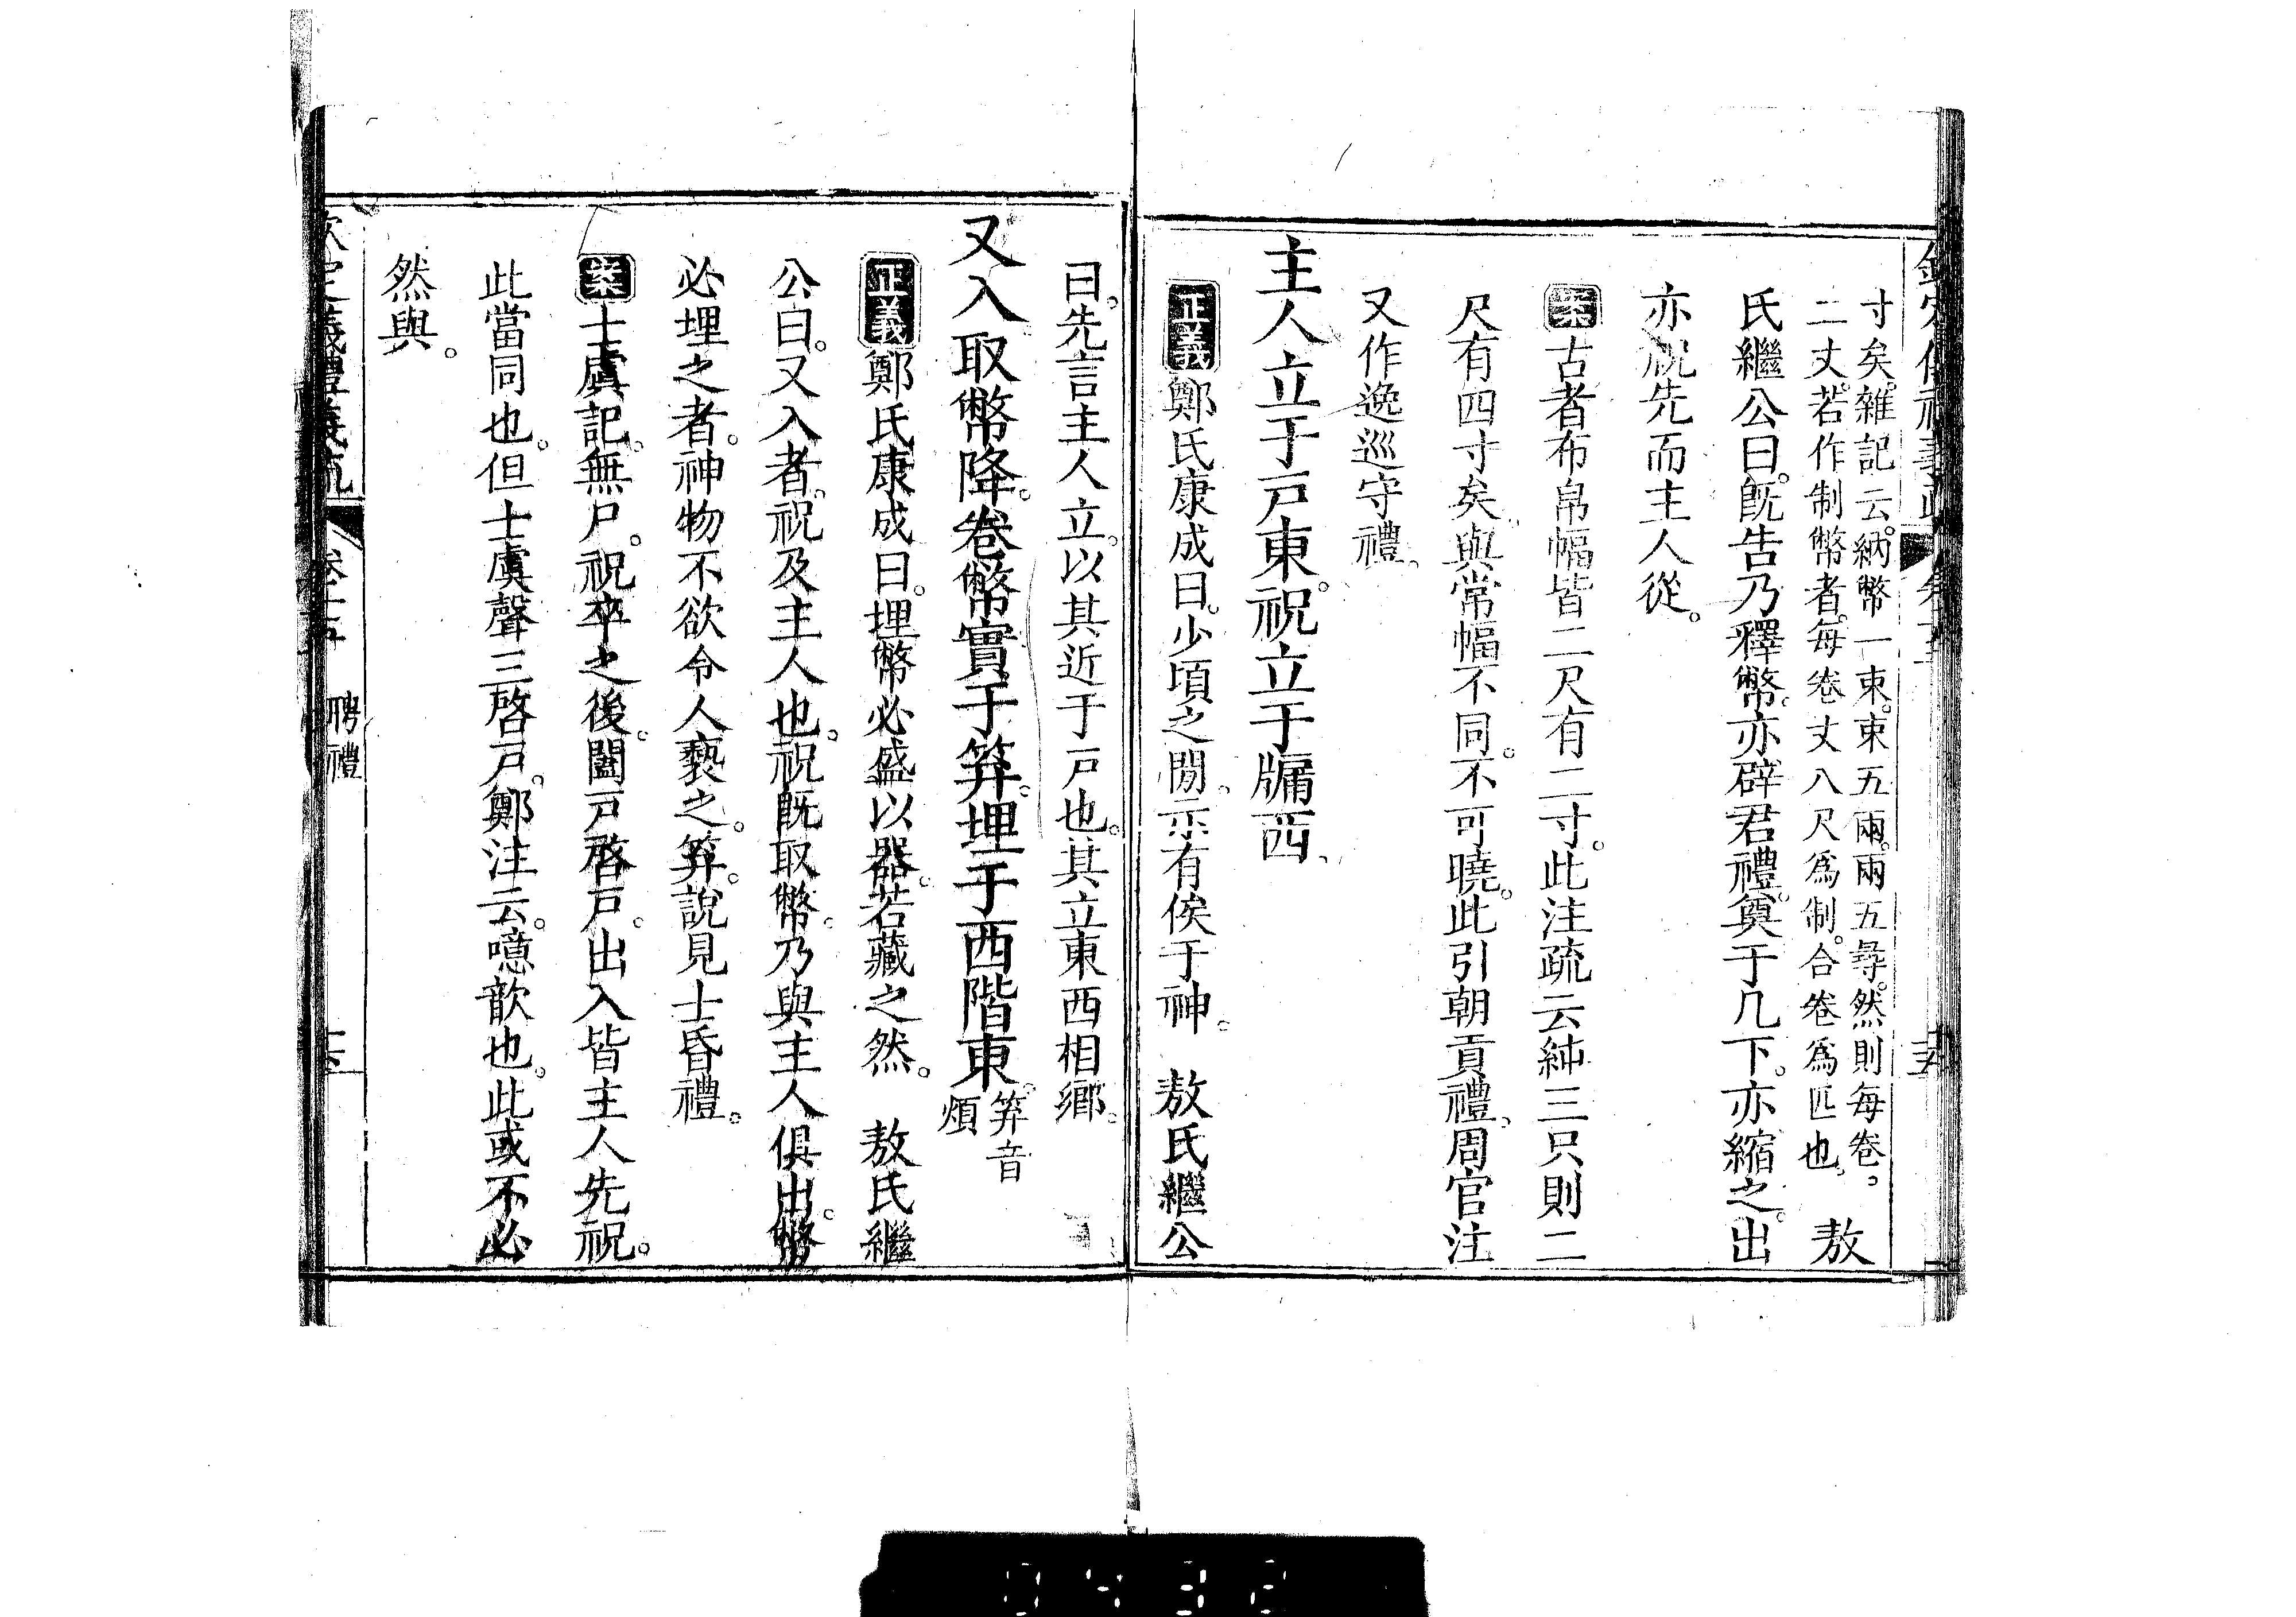 寸矣。雜記云。納幣一束。束五兩。兩五尋。然則每卷。
二丈。若作制幣者。每卷丈八尺爲制。合卷爲匹也。
敖
氏繼公曰。旣告乃釋幣。亦辟君禮。奠于几下。亦縮之。出
亦祝先而主人從。
案古者布帛幅皆二尺有二寸。此注疏云純三只則二
尺有四寸矣。與常幅不同。不可曉。此引朝貢禮。周官注
又作逸巡守禮。
主人立于戶東。祝立于牖西。
正義鄭氏康成曰。少頃之閒。示有俟于神。 敖氏繼公
曰。先言主人立。以其近于戶也。其立東西相鄉。
又入取幣降。卷幣實于笲。埋于西階東。笲音
煩
正義鄭氏康成曰。埋幣必盛以器。若藏之然。 敖氏繼
公曰。又入者。祝及主人也。祝旣取幣。乃與主人俱出。幣
必埋之者。神物不欲令人褻之。笲。說見士昏禮。
案士虞記。無尸。祝卒之後。闔戶啓戶。出入皆主人先祝。
此當同也。但士虞聲三啓戶。鄭注云。噫歆也。此或不必
然與。
欽定儀禮義疏 聘禮
0432